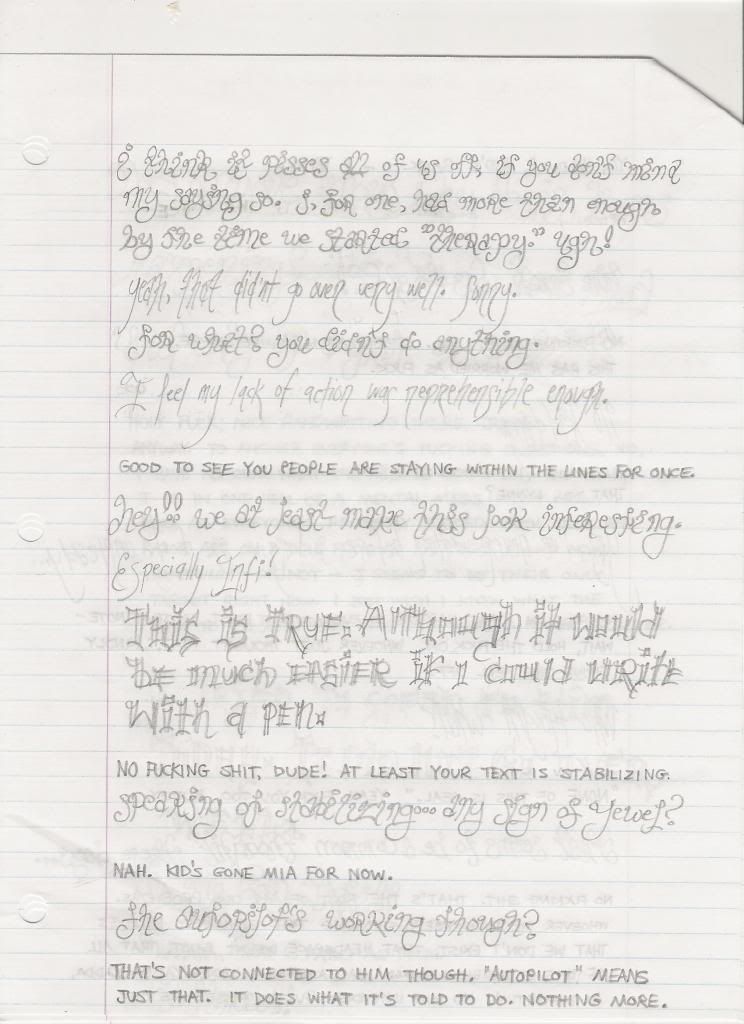 I think it pisses all of us off, if you don't mind
my saying so. I, for one, had more than enough
by the time we started "therapy." Ugh!
yeah, that didn't go over very well. Sorry.
for what? you didn't do anything.
I feel my lack of action was reprehensible enough.
GOOD TO SEE YOU PEOPLE ARE STAYING WITHIN THE LINES FOR ONCE.
Hey!! we at least make this look interesting.
Especially Infi!
This is true. Although it would
be much easier if I could write
with a pen.
NO FUCKING SHIT, DUDE! AT LEAST YOUR TEXT IS STABILIZING.
Speaking of stabilizing... any sign of Yewel?
NAH. KID'S GONE MIA FOR NOW.
The autopilot's working though?
THAT'S NOT CONNECTED TO HIM THOUGH. "AUTOPILOT" MEANS
JUST THAT. IT DOES WHAT IT'S TOLD TO DO. NOTHING MORE.